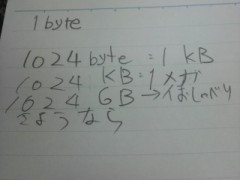 1 byte
1024 byte = 1 kB
1024 KB = 1 メガ
1024 GB →
さようなら